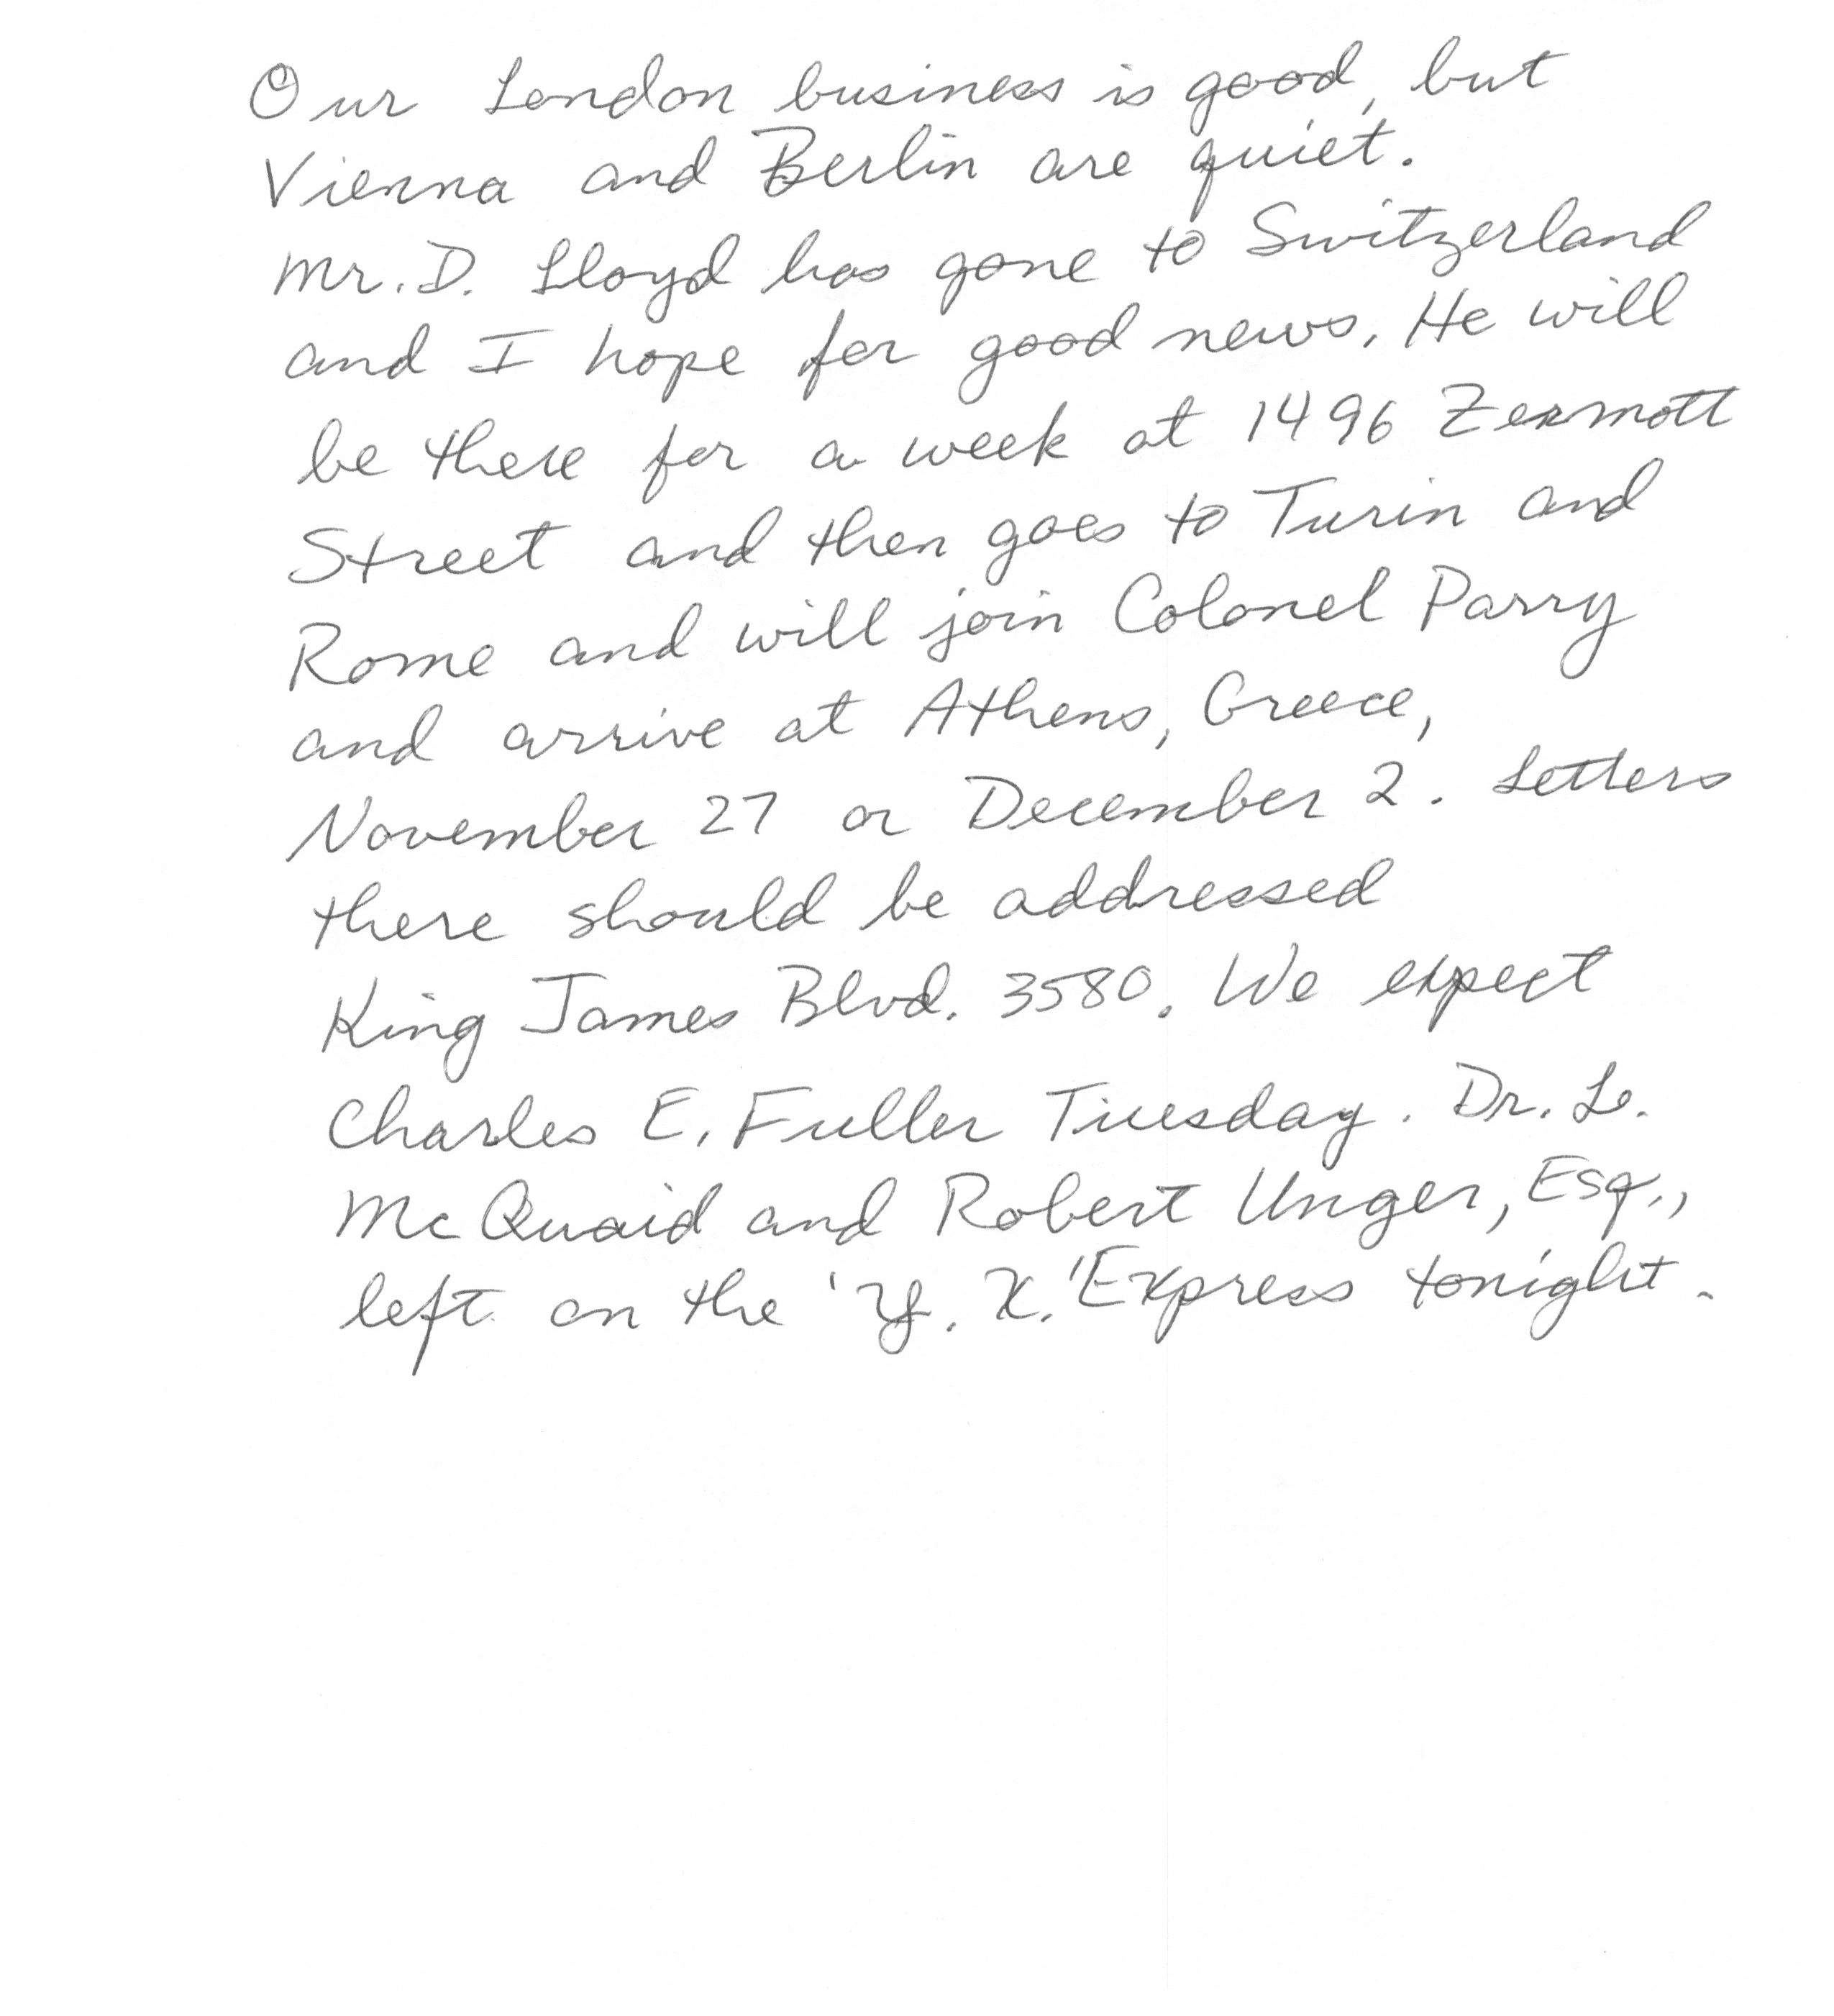 Our London business is good, but
Vienna and Berlin are quiet.
Mr. D. Lloyd has gone to Switzerland
and I hope for good news. He will
be there for a week at 1496 Zermott
Street and then goes to Turin and
Rome and will join Colonel Parry
and arrive at Athens, Greece,
November 27 or December 2. Letters
there should be addressed
King James Blvd. 3580. We expect
Charles E. Fuller Tuesday. Dr. L.
McQuaid and Robert Unger, Esq.,
left on the 'Y. X.' Express tonight.